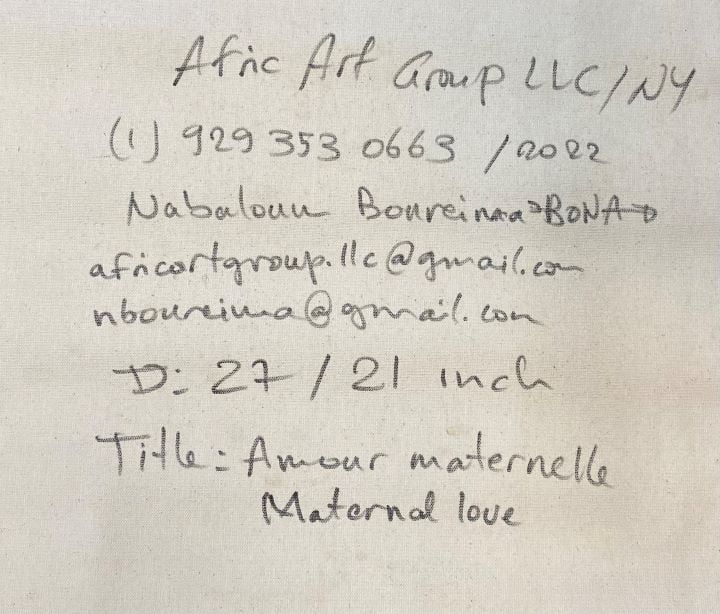 Afric Art Group LLC/NY
(1) 929 353 0663 /2022
Nabaloum Boureima >BONA→
africartgroup.llc@gmail.com
nboureima@gmail.com
D: 27 / 21 inch
Title: Amour maternelle
Maternal love